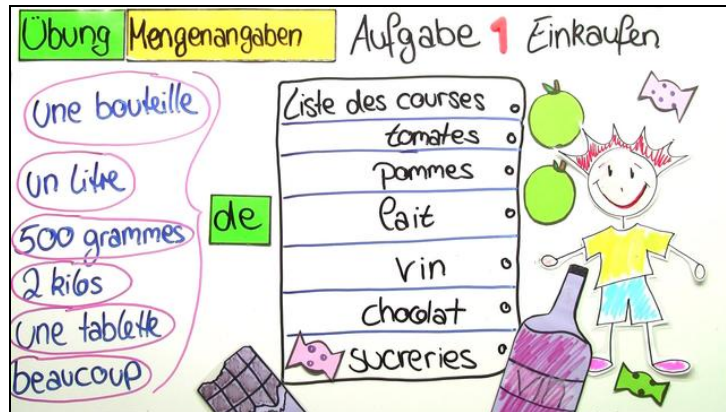 Übung Mengenangaben Aufgabe 1 Einkaufen
une bouteille
un litre
500 grammes
2 kilos
une tablette
beaucoup
de
Liste des courses
tomates
pommes
lait
vin
chocolat
sucreries
VIN